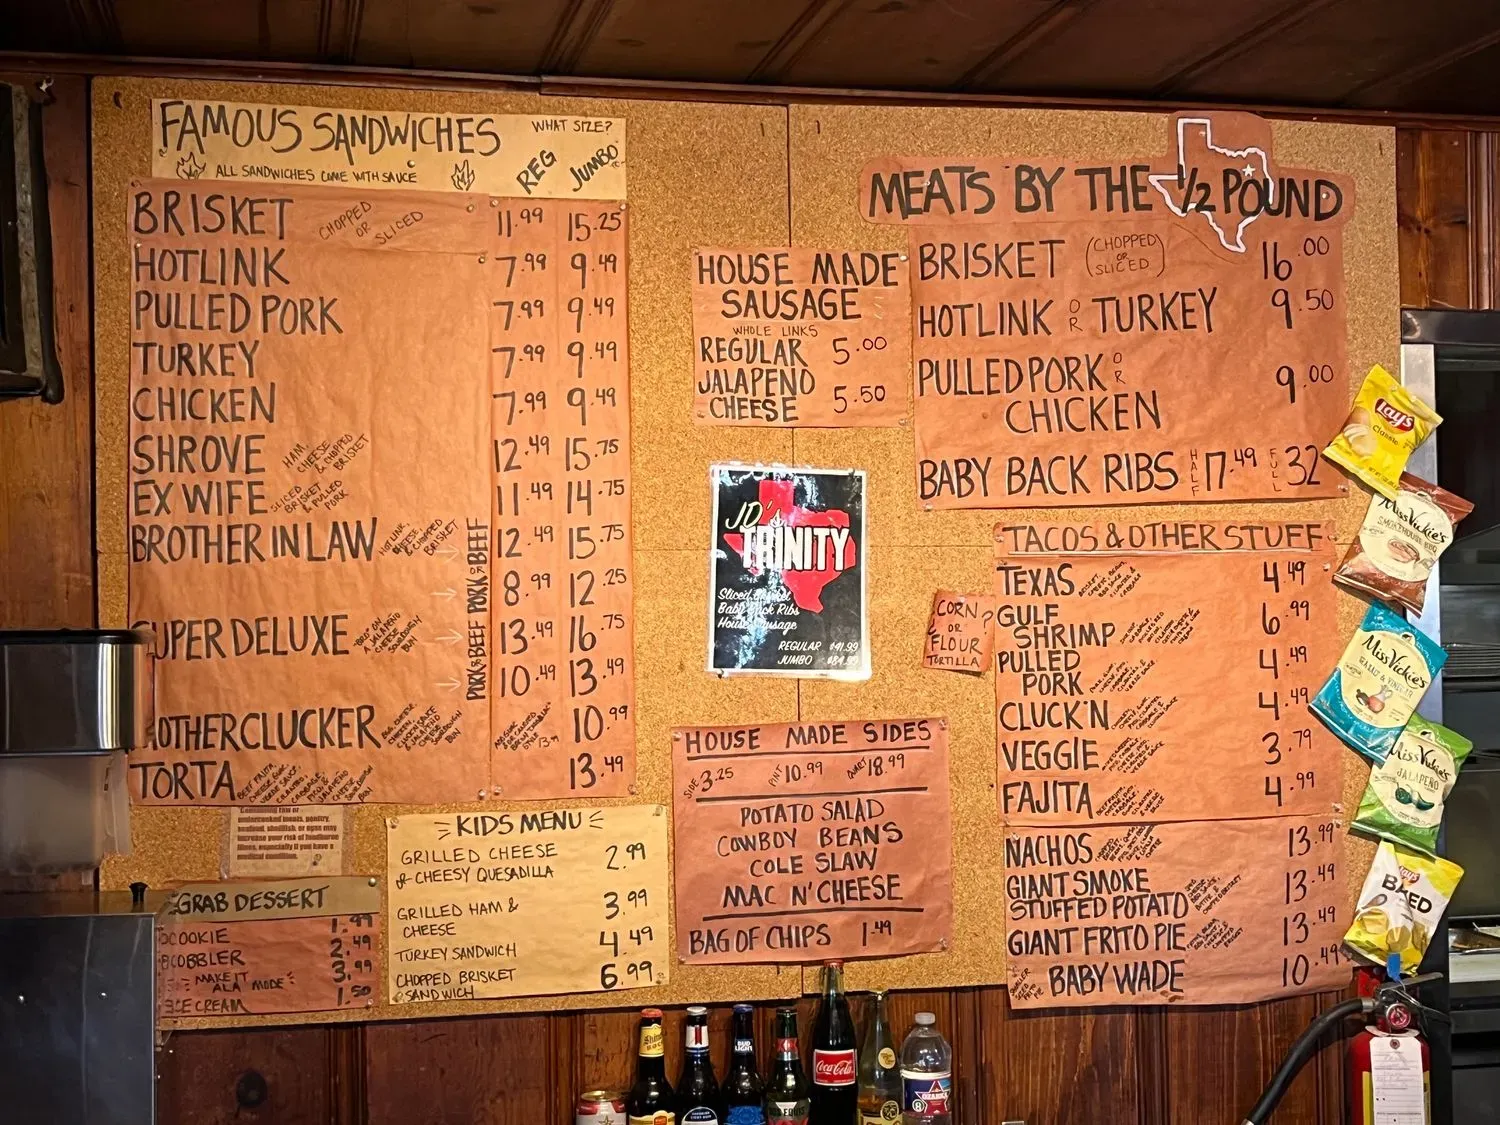 FAMOUS SANDWICHES
WHAT SIZE?
ALL SANDWICHES COME WITH SAUCE
REG JUMBO
BRISKET CHOPPED OR SLICED 11.99 15.25
HOTLINK 7.99 9.49
PULLED PORK 7.99 9.49
TURKEY 7.99 9.49
CHICKEN 7.99 9.49
SHROVE HAM, CHEESE & CHOPPED BRISKET 12.49 15.75
EX WIFE SLICED BRISKET & PULLED PORK 11.49 14.75
BROTHER IN LAW HOTLINK CHEESE & CHOPPED BRISKET 12.49 15.75
PORK OR BEEF
8.99 12.25
SUPER DELUXE JALAPENO SOURDOUGH BUN 13.49 16.75
PORK OR BEEF
10.49 13.49
MOTHERCLUCKER 10.99
TORTA 13.49
undercooked meats, poultry,
seafood, shellfish, or eggs may
increase your risk of foodborne
illness, especially if you have a
medical condition.
GRAB DESSERT
COOKIE 1.99
COBBLER 2.49
MAKE IT ALA MODE 3.99
ICE CREAM 1.50
KIDS MENU
GRILLED CHEESE
OR CHEESY QUESADILLA 2.99
GRILLED HAM &
CHEESE 3.99
TURKEY SANDWICH 4.49
CHOPPED BRISKET
SANDWICH 6.99
HOUSE MADE
SAUSAGE
WHOLE LINKS
REGULAR 5.00
JALAPENO
CHEESE 5.50
JD'S
TRINITY
Sliced Brisket
Baby Back Ribs
House Sausage
REGULAR $41.99
JUMBO $84.99
CORN?
OR
FLOUR
TORTILLA
HOUSE MADE SIDES
SIDE 3.25 PINT 10.99 QUART 18.99
POTATO SALAD
COWBOY BEANS
COLE SLAW
MAC N' CHEESE
BAG OF CHIPS 1.49
MEATS BY THE 1/2 POUND
BRISKET (CHOPPED OR SLICED) 16.00
HOTLINK OR TURKEY 9.50
PULLED PORK OR
CHICKEN 9.00
BABY BACK RIBS HALF 17.49 FULL 32
TACOS & OTHER STUFF
TEXAS 4.49
GULF
SHRIMP 6.99
PULLED
PORK 4.49
CLUCK'N 4.49
VEGGIE 3.79
FAJITA 4.99
NACHOS 13.99
GIANT SMOKE
STUFFED POTATO 13.49
GIANT FRITO PIE 13.49
BABY WADE 10.49
Lay's
Classic
Miss Vickie's
SMOKEHOUSE BBQ
Miss Vickie's
SEA SALT & VINEGAR
Miss Vickie's
JALAPEÑO
Lay's
BAKED
Shiner
BOCK
BUD LIGHT
Coca-Cola
OZARKA